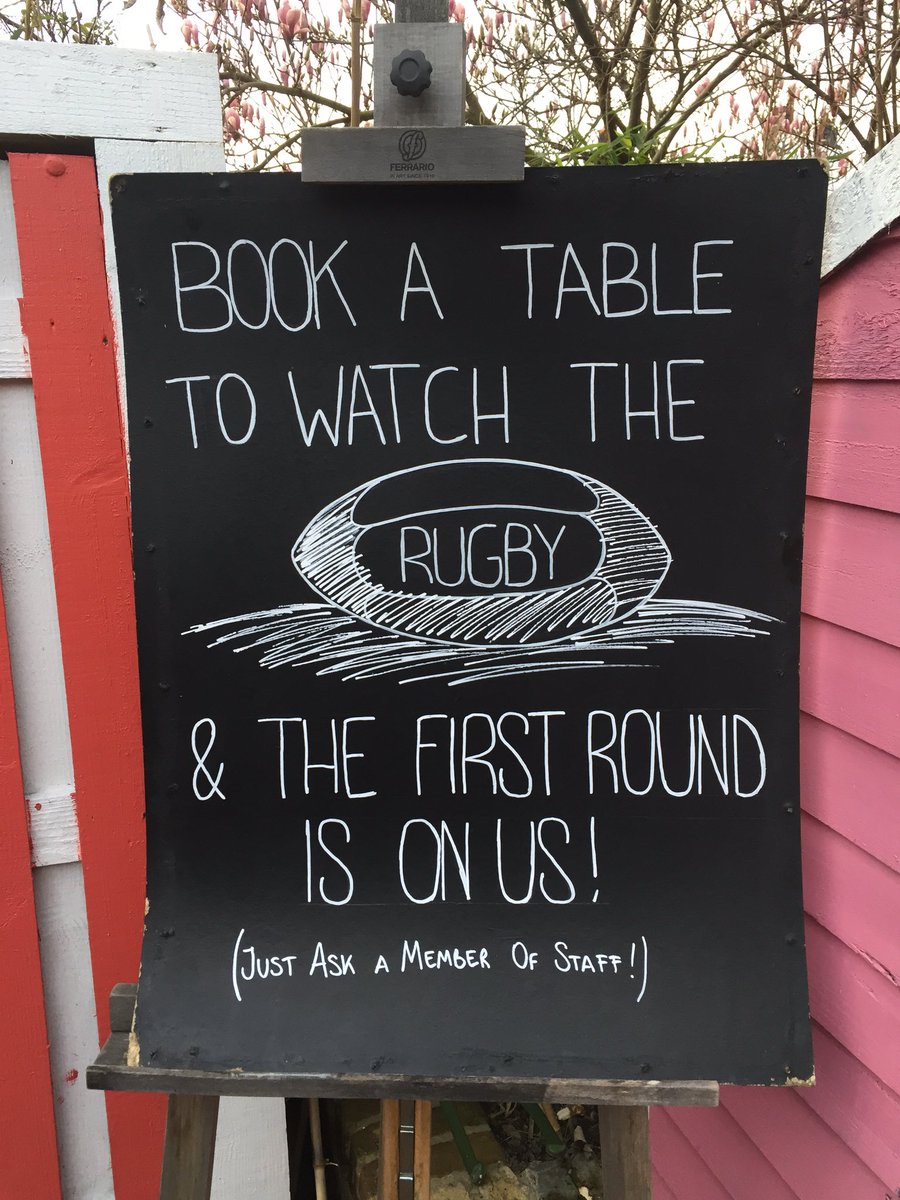 FERRARIO
IN ART SINCE 1919
BOOK A TABLE
TO WATCH THE
RUGBY
& THE FIRST ROUND
IS ON US!
(JUST ASK A MEMBER OF STAFF!)